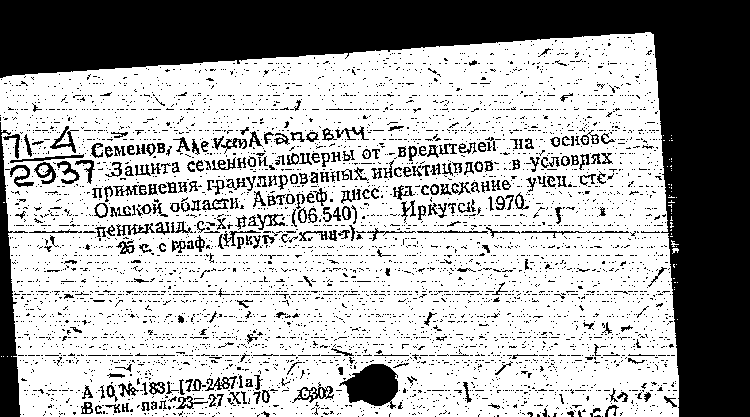 71-4
2937
Семенов, Алексей Агапович
Защита семенной люцерны от вредителей на основе
применения гранулированных инсектицидов в условиях
Омской области. Автореф. дисс. на соискание учен. сте-
пени канд. с.-х. наук. (06.540) Иркутск, 1970.
25 с. с граф. (Иркут. с.-х. ин-т).
А 10 № 1831 [70-24871а]
Вс. кн. пал. 23—27 XI 70 С302